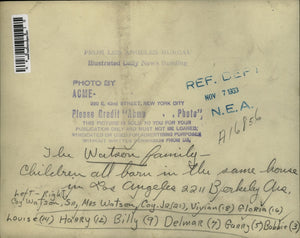 FROM LOS ANGELES BUREAU
Illustrated Daily News Building
PHOTO BY
ACME-
220 E. 42nd STREET, NEW YORK CITY
Please Credit "Acme Photo"
THIS PICTURE IS SOLD TO YOU FOR YOUR
PUBLICATION ONLY AND MUST NOT BE LOANED,
SYNDICATED OR USED FOR ADVERTISING PURPOSES
WITHOUT WRITTEN PERMISSION FROM US.
REF. DEPT
NOV 7 1933
N.E.A.
A16856
The Watson family-
Children all born in the same house
in Los Angeles 2211 Berkeley Ave,
Left-Right
Coy Watson, Sr, Mrs Watson, Coy Jr (21), Vivian (18) Gloria (16)
Louise (14) Harry (12) Billy (9) Delmar (7) Garry (5) Bobbie (3)